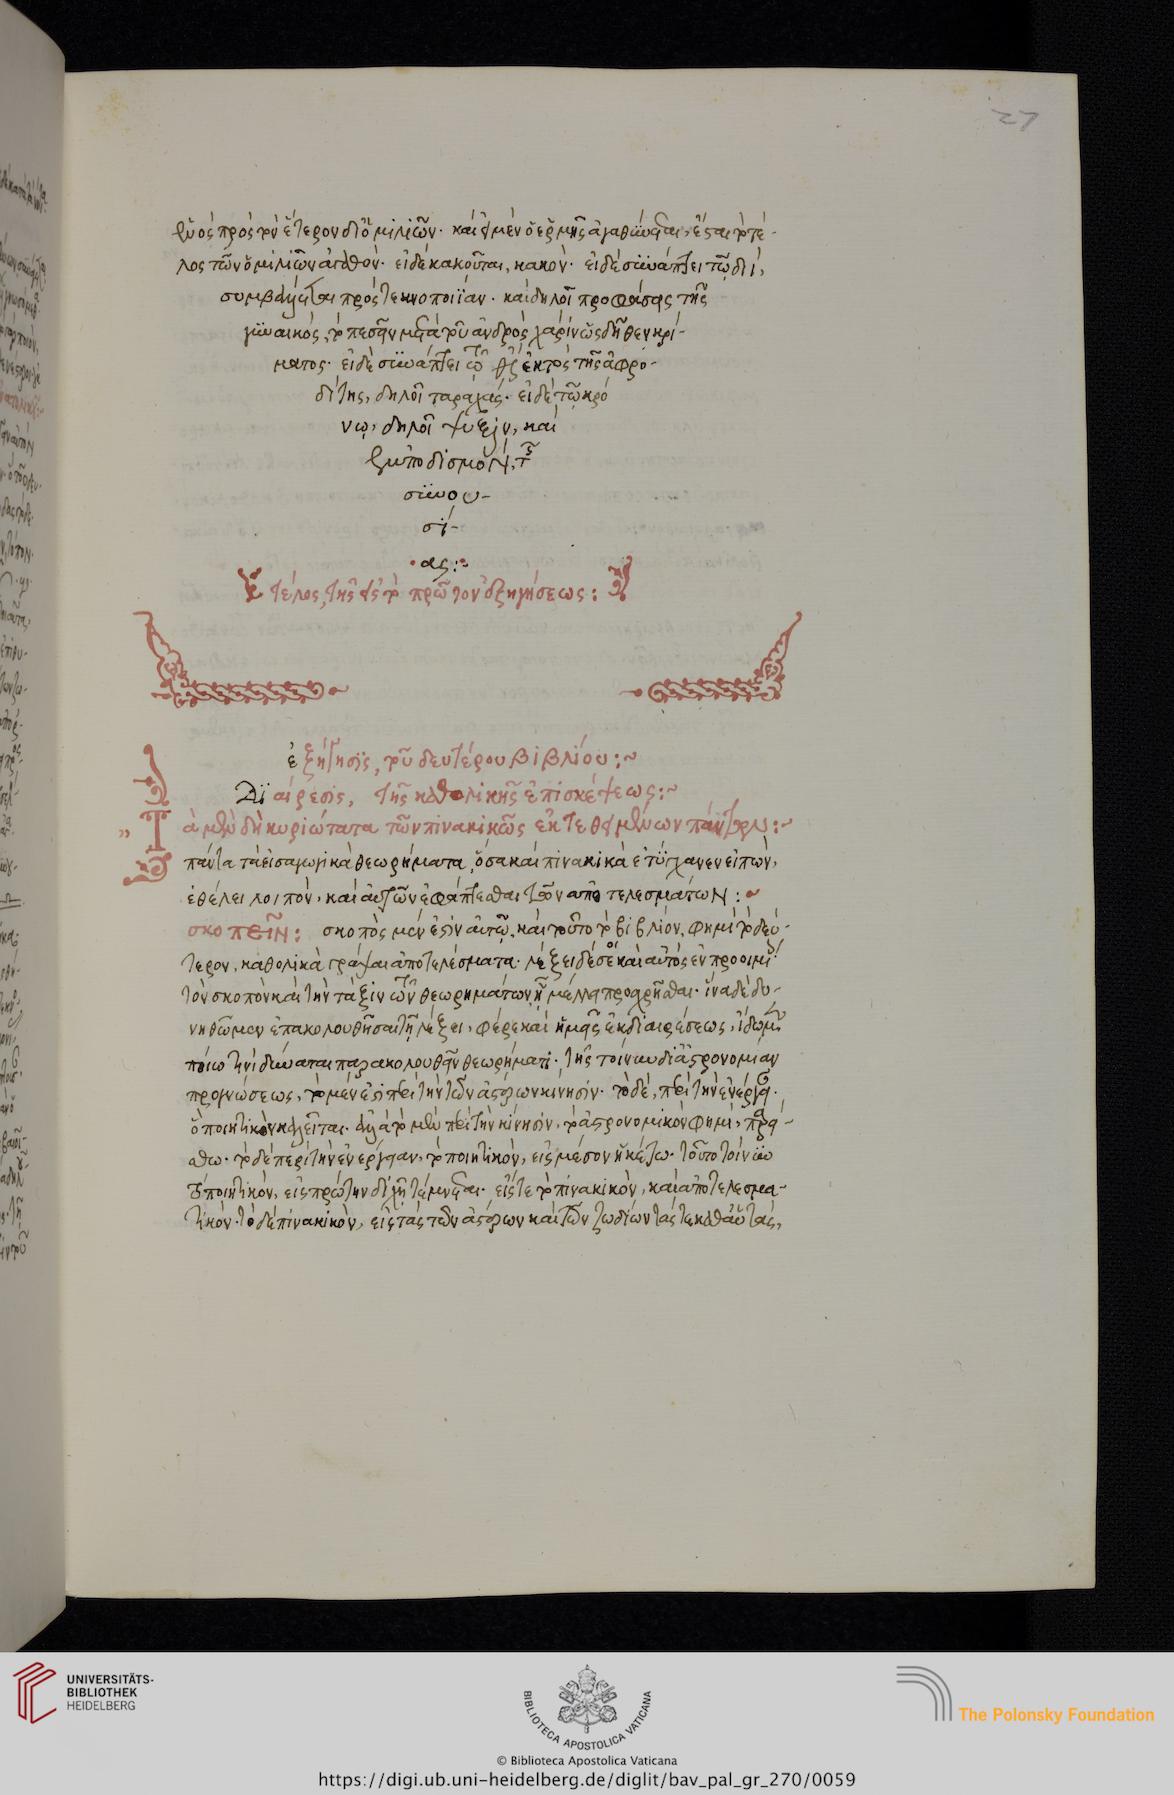 27
ἑνὸς πρὸς τὸν ἕτερον δι' ὁμιλιῶν. καὶ εἰ μὲν ὁ ἑρμῆς ἀγαθύνεται, ἔσται τὸ τέ-
λος τῶν ὁμιλιῶν ἀγαθόν. εἰ δὲ κακοῦται, κακόν. εἰ δὲ συνάπτει τῷ διὶ,
συμβάλλεται πρὸς τεκνοποιΐαν. καὶ δηλοῖ προφάσεις τῆς
γυναικός, τὸ πεσεῖν μετὰ τοῦ ἀνδρὸς χάριν ὡς δῆθεν κρί-
ματος. εἰ δὲ συνάπτει ἐκτὸς τῆς ἀφρο-
δίτης, δηλοῖ ταραχάς. εἰ δὲ τῷ κρό
νῳ, δηλοῖ ψῦξιν, καὶ
ἐμποδισμὸν τῆς
συνου-
σί-
ας:
τέλος τῆς εἰς τὸ πρῶτον ἐξηγήσεως:
ἐξήγησις τοῦ δευτέρου βιβλίου:~
Διαίρεσις, τῆς καθολικῆς ἐπισκέψεως:~
Τὰ μὲν δὴ κυριώτατα τῶν πινακικῶς ἐκτεθειμένων
πάντα τὰ εἰσαγωγικὰ θεωρήματα, ὅσα καὶ πινακικὰ ἐτύγχανεν εἰπών,
ἐθέλει λοιπόν, καὶ αὐτῶν ἐφάπτεσθαι τῶν ἀποτελεσμάτων:
σκοπεῖν: σκοπὸς μέν ἐστιν αὐτῷ, κατὰ τοῦτο τὸ βιβλίον, φημὶ τὸ δεύ-
τερον, καθολικὰ γράψαι ἀποτελέσματα. λέξει δέ σοι καὶ αὐτὸς ἐν προοιμίῳ
τὸν σκοπὸν καὶ τὴν τάξιν τῶν θεωρημάτων ἢ μέλλει προαιρεῖσθαι. ἵνα δὲ δυ-
νηθῶμεν ἐπακολουθῆσαι τῇ λέξει, φέρε καὶ ἡμεῖς ἐκ διαιρέσεως, ἴδωμεν
ποίῳ τινὶ δύναται παρακολουθεῖν θεωρήματι. τῆς τοίνυν δι' ἀστρονομίαν
προγνώσεως, τὸ μέν ἐστι περὶ τὴν τῶν ἀστέρων κίνησιν. τὸ δὲ, περὶ τὴν ἐνέργειαν.
ὃ ποιητικὸν καλεῖται. ἀλλὰ τὸ μὲν περὶ τὴν κίνησιν, τὸ ἀστρονομικὸν φημί, παρεί-
σθω. τὸ δὲ περὶ τὴν ἐνέργειαν, τὸ ποιητικόν, εἰς μέσον ἡκέτω. τοῦτο τοίνυν
τὸ ποιητικόν, εἰς πρώτην διχῆ τέμνεται. εἴς τε τὸ πινακικόν, καὶ ἀποτελεσμα-
τικόν. τὸ δὲ πινακικὸν, εἰς τὰς τῶν ἀστέρων καὶ τῶν ζωδίων τάς τε καθ' αὑτὰς,
UNIVERSITÄTS-
BIBLIOTHEK
HEIDELBERG
BIBLIOTECA APOSTOLICA VATICANA
The Polonsky Foundation
© Biblioteca Apostolica Vaticana
https://digi.ub.uni-heidelberg.de/diglit/bav_pal_gr_270/0059